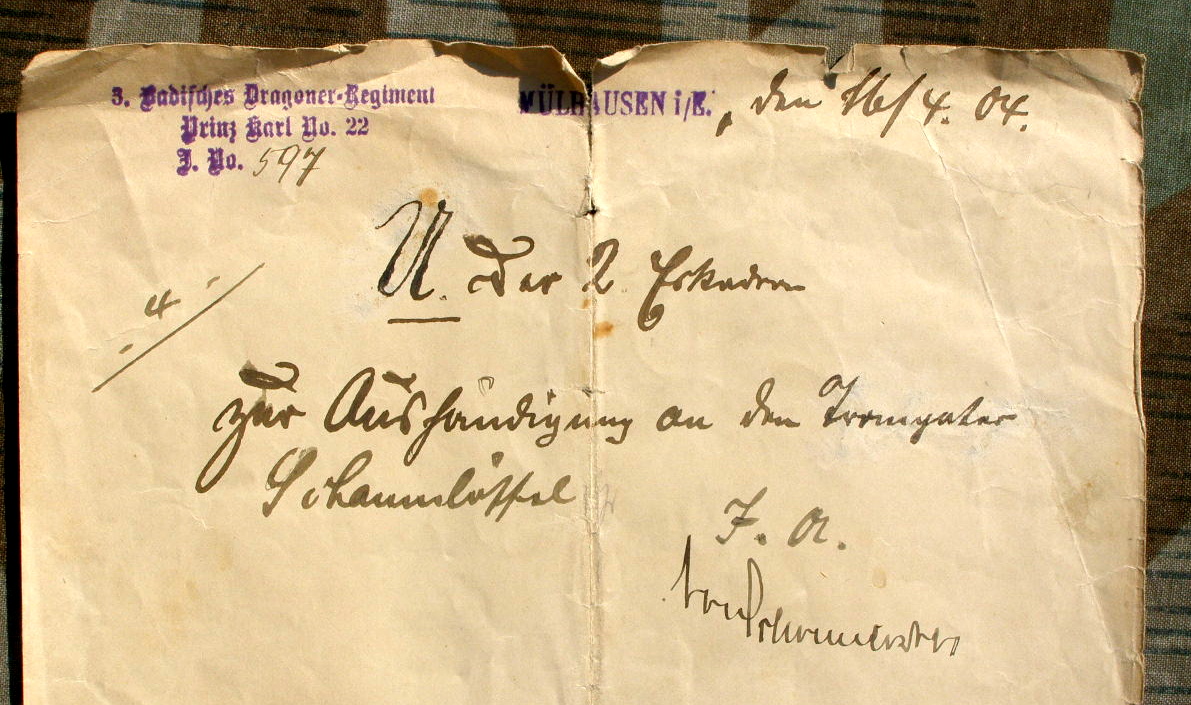 3. Badisches Dragoner-Regiment
Prinz Karl No. 22
J. No. 597
MÜLHAUSEN i/E., den 16/4. 04.
U. der 2. Eskadron
4
zur Aushändigung an den Trompeter
Schaumlöffel
J. A.
von